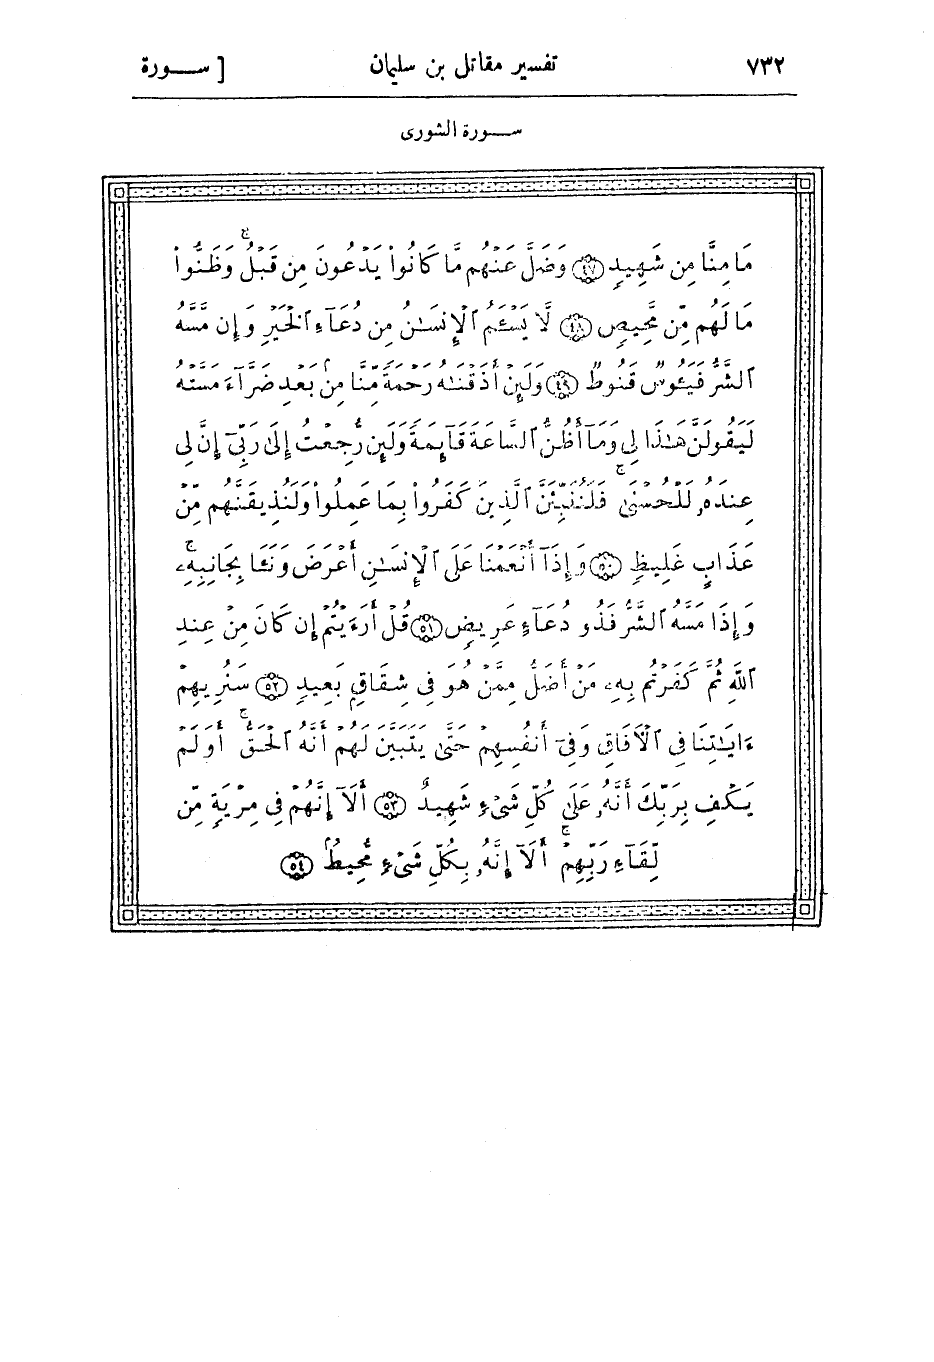 ٧٣٢ تفسير مقاتل بن سليمان [ سـورة
سـورة الشورى
مَا مِنَّا مِن شَهِيدٍ ﴿٤٧﴾ وَضَلَّ عَنْهُم مَّا كَانُوا۟ يَدْعُونَ مِن قَبْلُ ۖ وَظَنُّوا۟
مَا لَهُم مِّن مَّحِيصٍ ﴿٤٨﴾ لَّا يَسْـَٔمُ ٱلْإِنسَـٰنُ مِن دُعَآءِ ٱلْخَيْرِ وَإِن مَّسَّهُ
ٱلشَّرُّ فَيَـُٔوسٌ قَنُوطٌ ﴿٤٩﴾ وَلَئِنْ أَذَقْنَـٰهُ رَحْمَةً مِّنَّا مِنۢ بَعْدِ ضَرَّآءَ مَسَّتْهُ
لَيَقُولَنَّ هَـٰذَا لِى وَمَآ أَظُنُّ ٱلسَّاعَةَ قَآئِمَةً وَلَئِن رُّجِعْتُ إِلَىٰ رَبِّىٓ إِنَّ لِى
عِندَهُۥ لَلْحُسْنَىٰ ۚ فَلَنُنَبِّئَنَّ ٱلَّذِينَ كَفَرُوا۟ بِمَا عَمِلُوا۟ وَلَنُذِيقَنَّهُم مِّنْ
عَذَابٍ غَلِيظٍ ﴿٥٠﴾ وَإِذَآ أَنْعَمْنَا عَلَى ٱلْإِنسَـٰنِ أَعْرَضَ وَنَـَٔا بِجَانِبِهِۦ
وَإِذَا مَسَّهُ ٱلشَّرُّ فَذُو دُعَآءٍ عَرِيضٍ ﴿٥١﴾ قُلْ أَرَءَيْتُمْ إِن كَانَ مِنْ عِندِ
ٱللَّهِ ثُمَّ كَفَرْتُم بِهِۦ مَنْ أَضَلُّ مِمَّنْ هُوَ فِى شِقَاقٍۭ بَعِيدٍ ﴿٥٢﴾ سَنُرِيهِمْ
ءَايَـٰتِنَا فِى ٱلْـَٔافَاقِ وَفِىٓ أَنفُسِهِمْ حَتَّىٰ يَتَبَيَّنَ لَهُمْ أَنَّهُ ٱلْحَقُّ ۗ أَوَلَمْ
يَكْفِ بِرَبِّكَ أَنَّهُۥ عَلَىٰ كُلِّ شَىْءٍ شَهِيدٌ ﴿٥٣﴾ أَلَآ إِنَّهُمْ فِى مِرْيَةٍ مِّن
لِّقَآءِ رَبِّهِمْ ۗ أَلَآ إِنَّهُۥ بِكُلِّ شَىْءٍ مُّحِيطٌۢ ﴿٥٤﴾